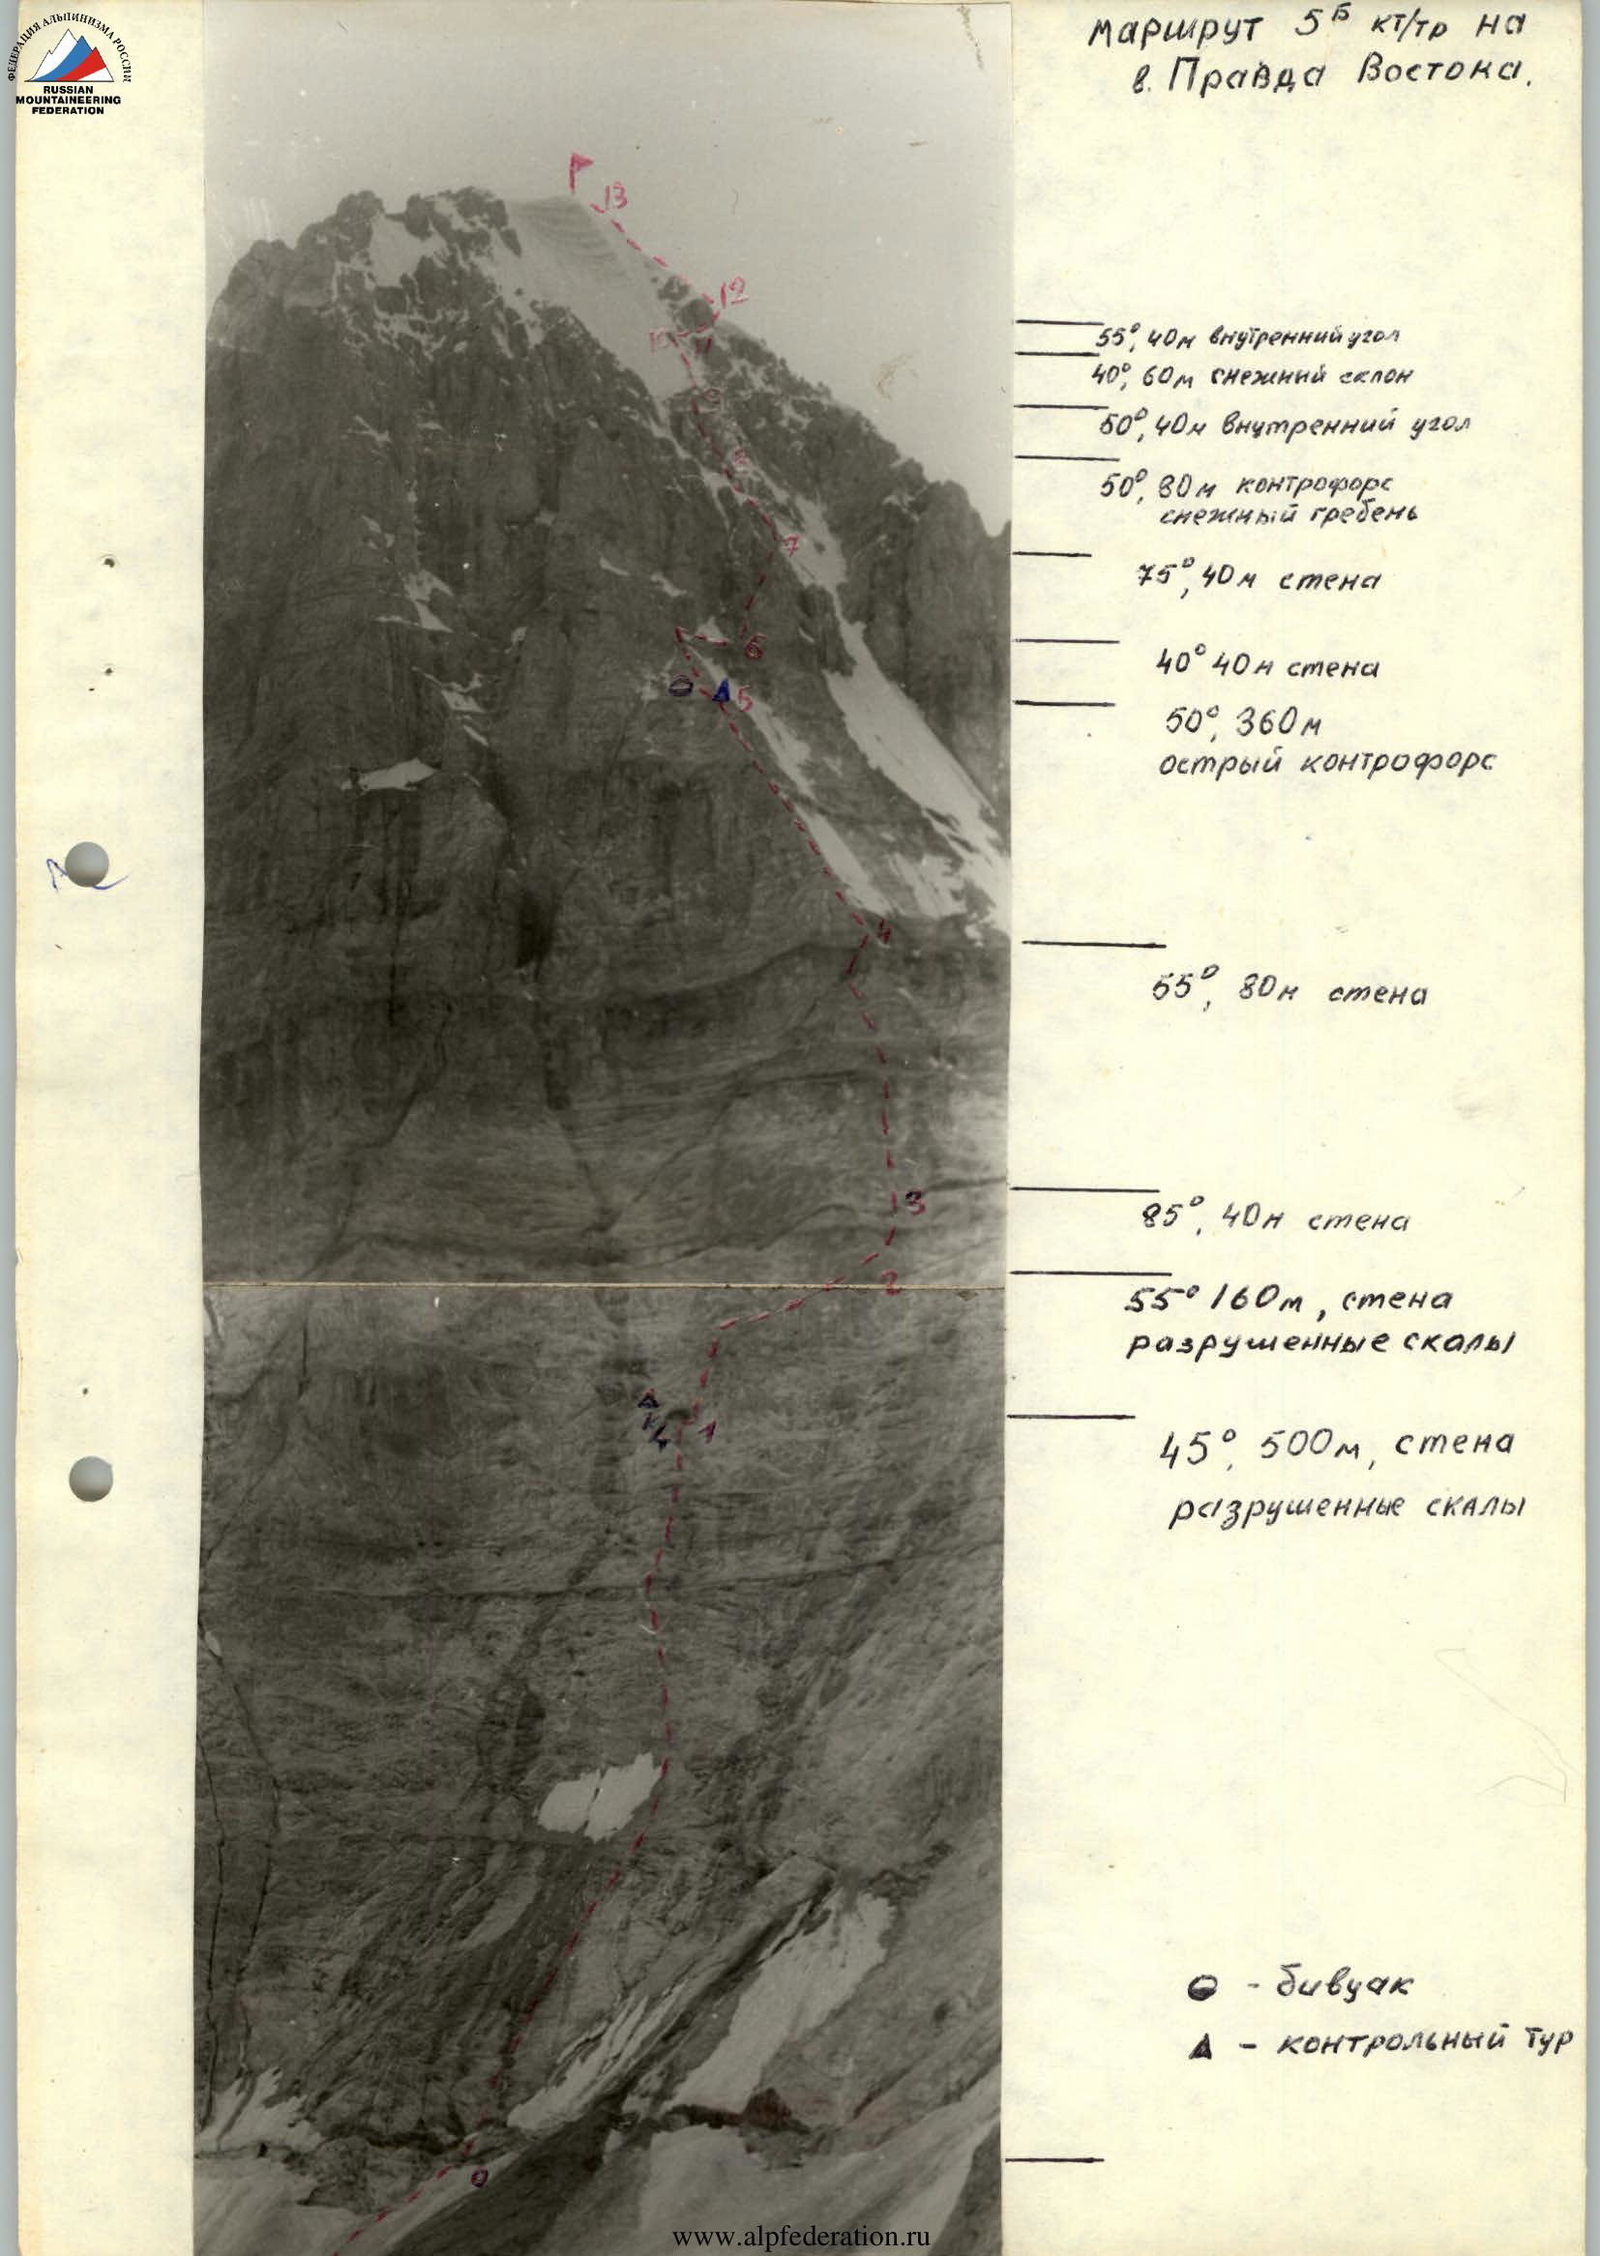 ФЕДЕРАЦИЯ АЛЬПИНИЗМА РОССИИ
RUSSIAN
MOUNTAINEERING
FEDERATION
Маршрут 5Б кт/тр на
в. Правда Востока.
13
12
55°, 40м внутренний угол
40°, 60м снежный склон
50°, 40м внутренний угол
50°, 80м контрофорс
снежный гребень
7
75°, 40м стена
6
40° 40м стена
5
50°, 360м
острый контрофорс
4
55°, 80м стена
3
85°, 40м стена
2
55° 160м, стена
разрушенные скалы
1
45°, 500м, стена
разрушенные скалы
- бивуак
- контрольный тур
0
www.alpfederation.ru